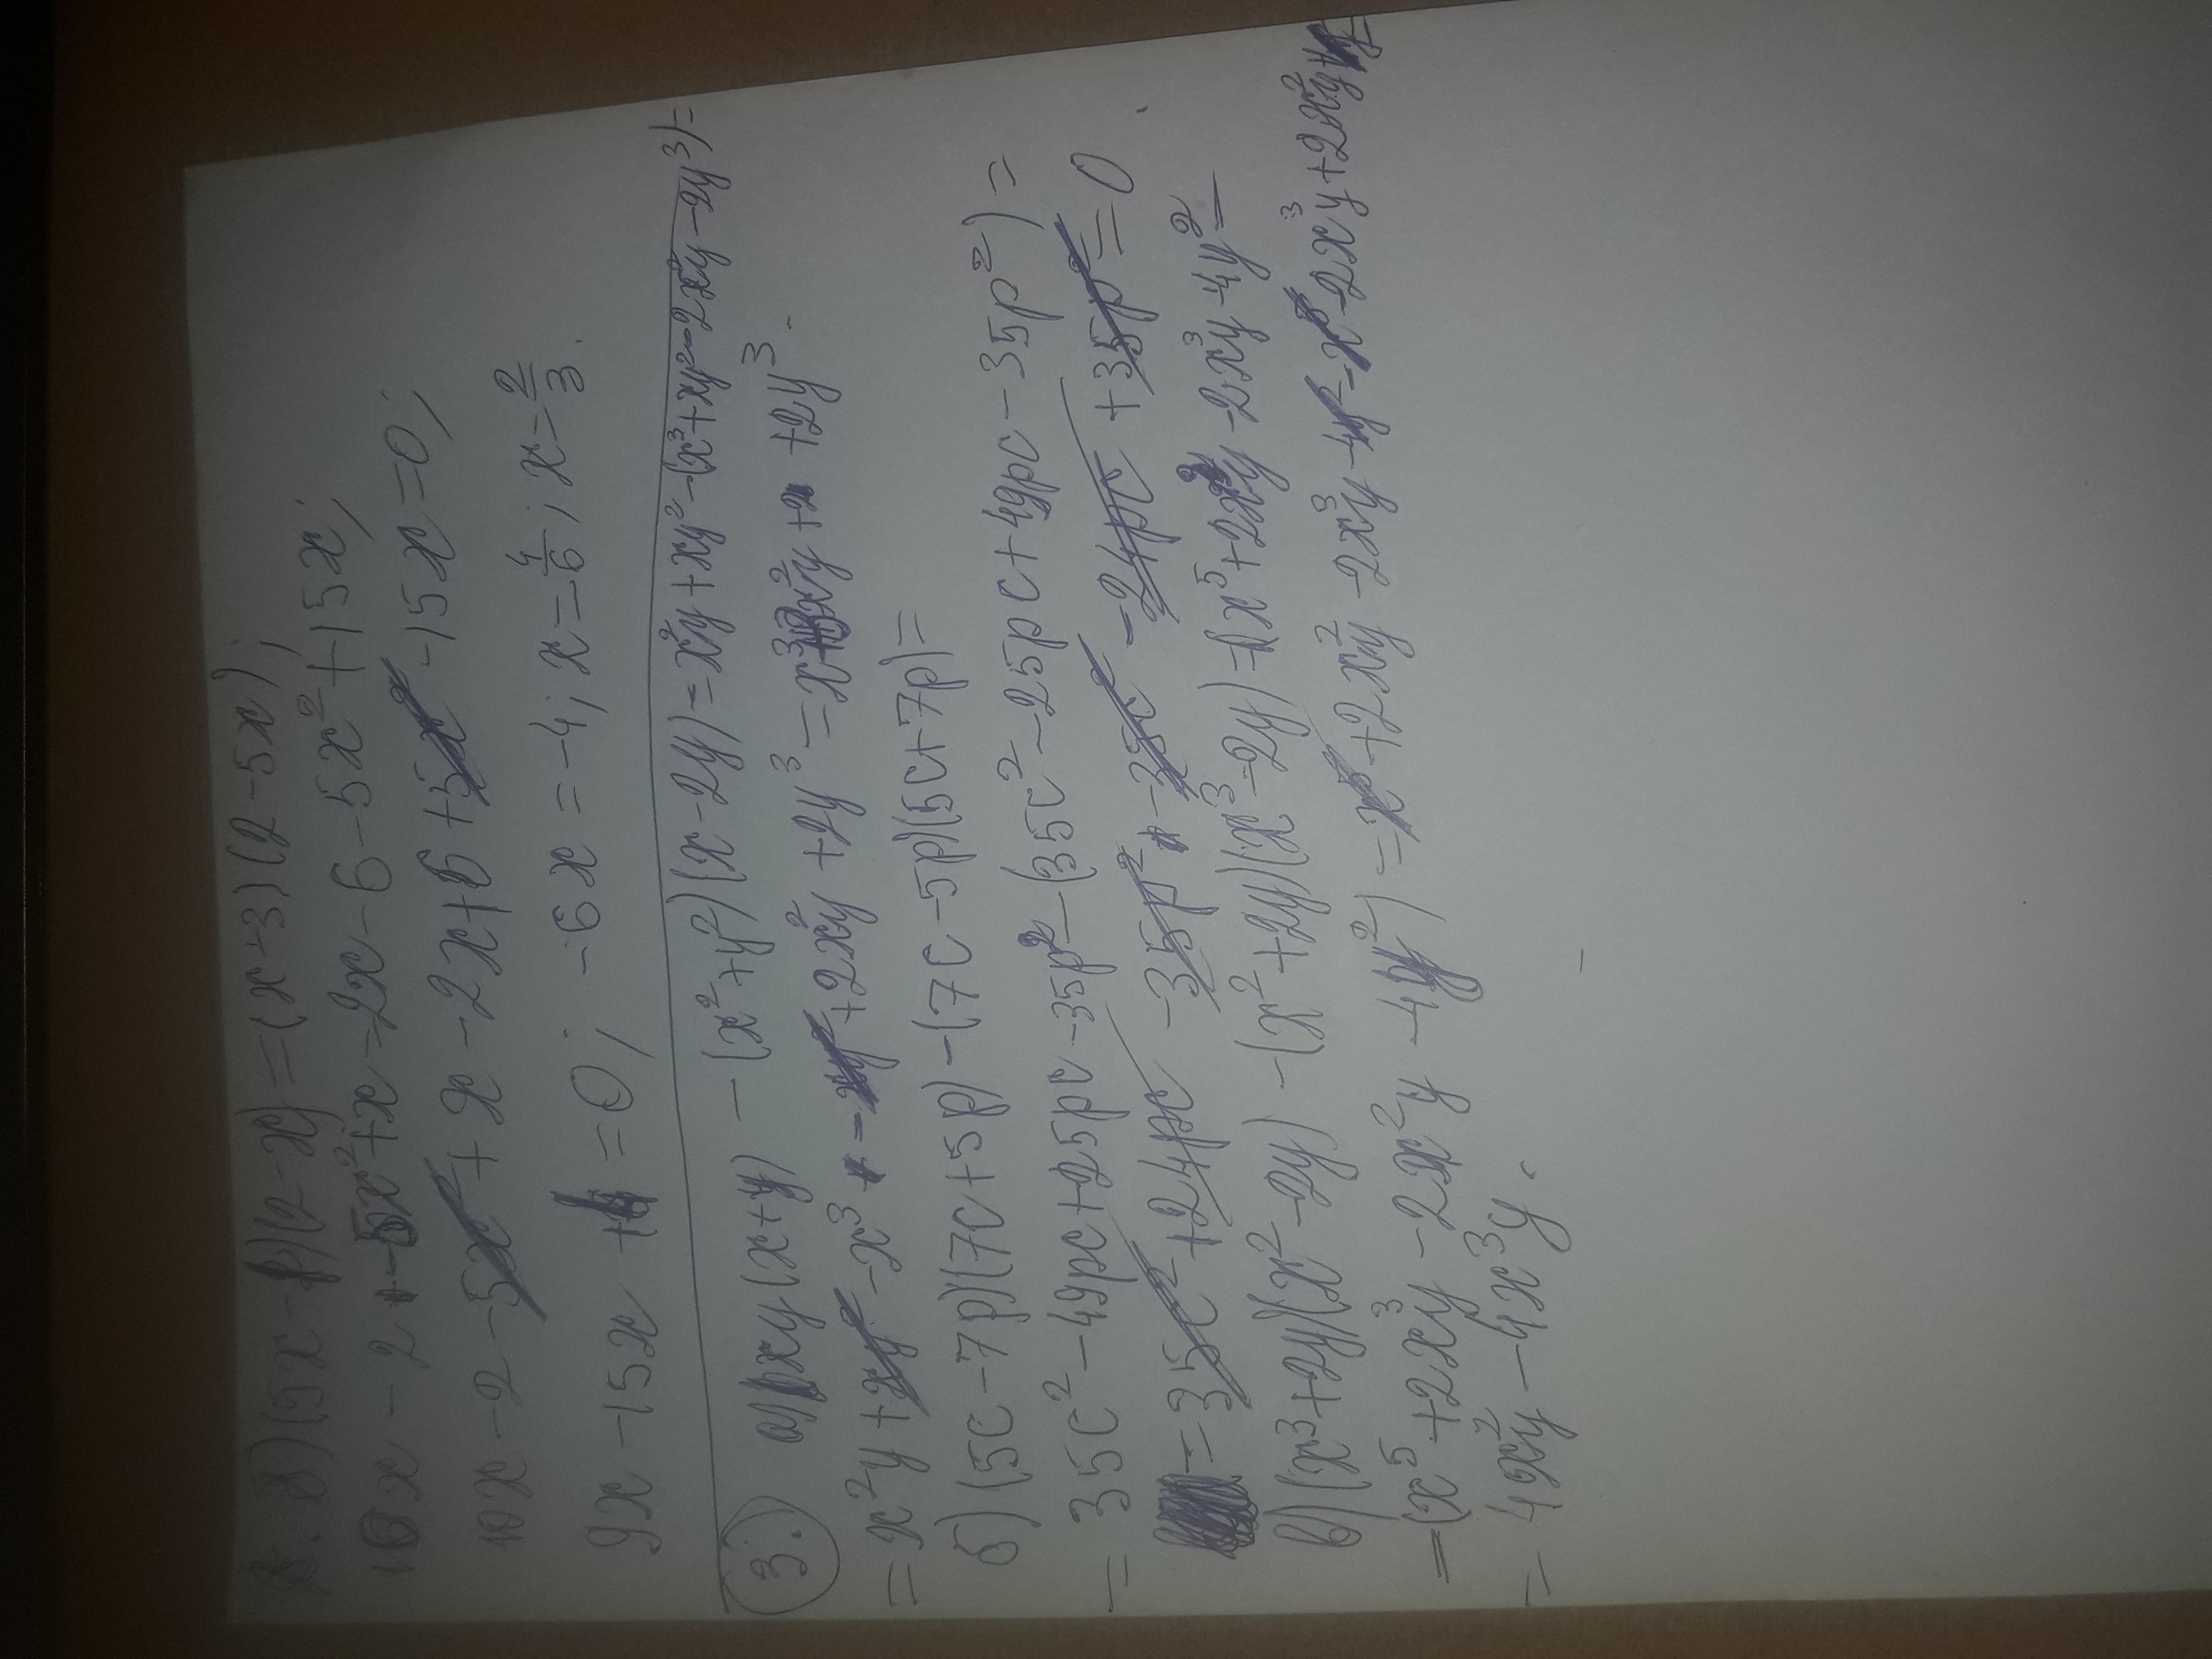 б) (5x-1)(2-x) = (x-3)(2-5x);
10x-2-5x²+x=2x-6-5x²+15x;
10x-2-5x²+x-2x+6+5x²-15x=0;
9x-15x+4=0; -6x=-4; x=4/6; x=2/3.
3. а) xy(x+y)-(x²+y²)(x-2y)=x²y+xy²-(x³+xy²-2x²y-2y³)=
=x²y+xy²-x³-xy²+2x²y+2y³=x³ x²y+2y³.
б) (5c-7p)(7c+5p)-(7c-5p)(5c+7p)=
=35c²-49pc+25pc-35p²-(35c²-25pc+49pc-35p²)=
=35c²-24pc-35p²-35c²-24pc+35p²=0.
в) (x³+2y)(x²-2y)-(x²+2y)(x³-2y)=(x⁵+2x²y-2x³y-4y²-
=(x⁵+2x³y-2x²y-4y²)=x⁵+2x²y-2x³y-4y²-x⁵-2x³y+2x²y+
=4x²y-4x³y.